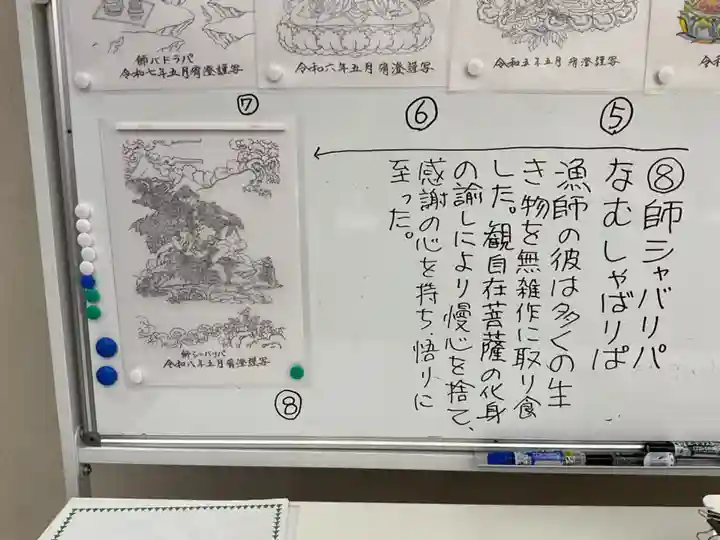 師バドラパ
令和七年五月有澄謹写
令和六年五月有澄謹写
令和五年五月有澄謹写
令和
⑦
⑥
⑤
⑧師シャバリパ
なむしゃばりぱ
漁師の彼は多くの生
き物を無雑作に取り食
した。観自在菩薩の化身
の諭しにより慢心を捨て、
感謝の心を持ち、悟りに
至った。
師シャバリパ
令和八年五月有澄謹写
⑧